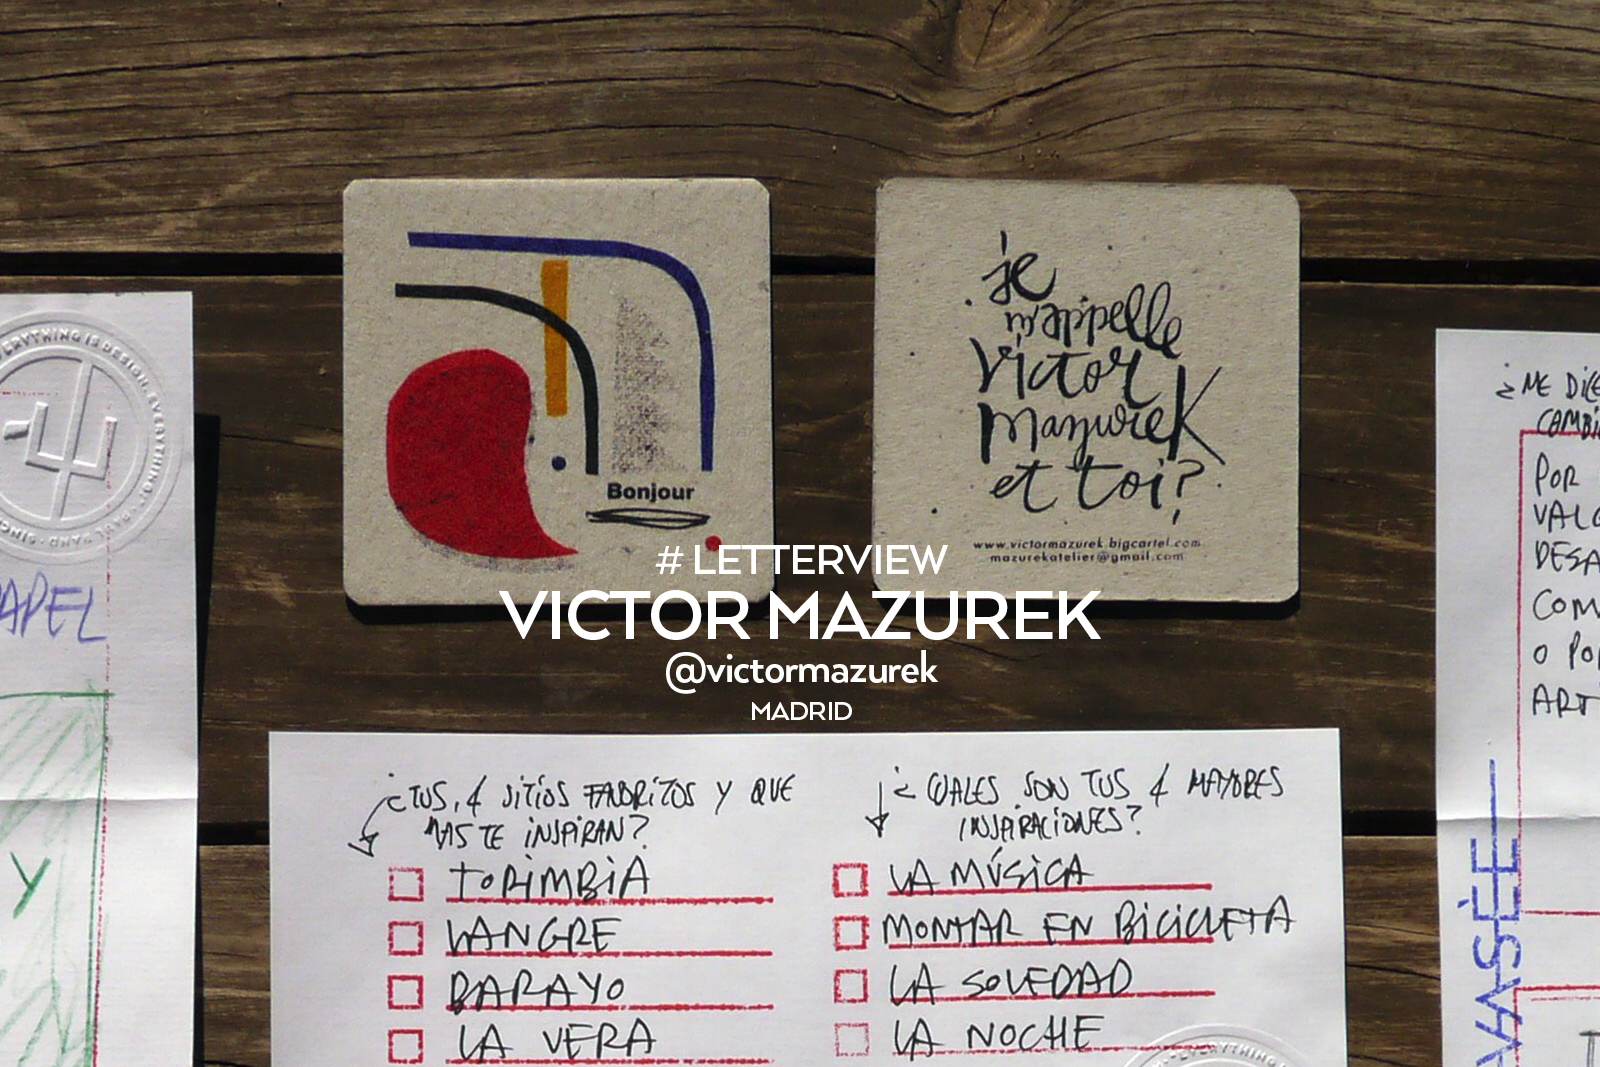 Bonjour
je
m'appelle
Victor
Mazurek
et toi?
www.victormazurek.bigcartel.com
mazurekatelier@gmail.com
# LETTERVIEW
VICTOR MAZUREK
@victormazurek
MADRID
¿TUS 4 SITIOS FABORITOS Y QUE
MAS TE INSPIRAN?
TORIMBIA
LANGRE
BARAYO
LA VERA
¿CUALES SON TUS 4 MAYORES
INSPIRACIONES?
LA MÚSICA
MONTAR EN BICICLETA
LA SOLEDAD
LA NOCHE
EVERYTHING IS DESIGN · EVERYTHING! · PAUL RAND · SINC
APEL
Y
¿ME DICE
CAMBI
POR
VALO
DESA
COM
O PO
ART
EVERYTHING